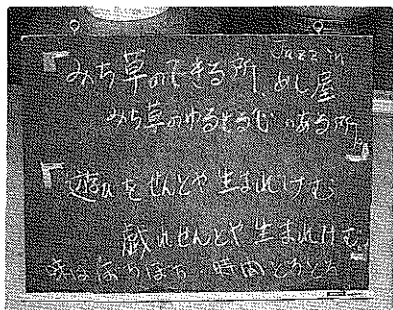 Jazz in
みち草のできる所 めし屋
みち草のゆるせる心のある所
遊びをせんとや生まれけむ
戯れせんとや生まれけむ
味はぼちぼち 時間とろとろ